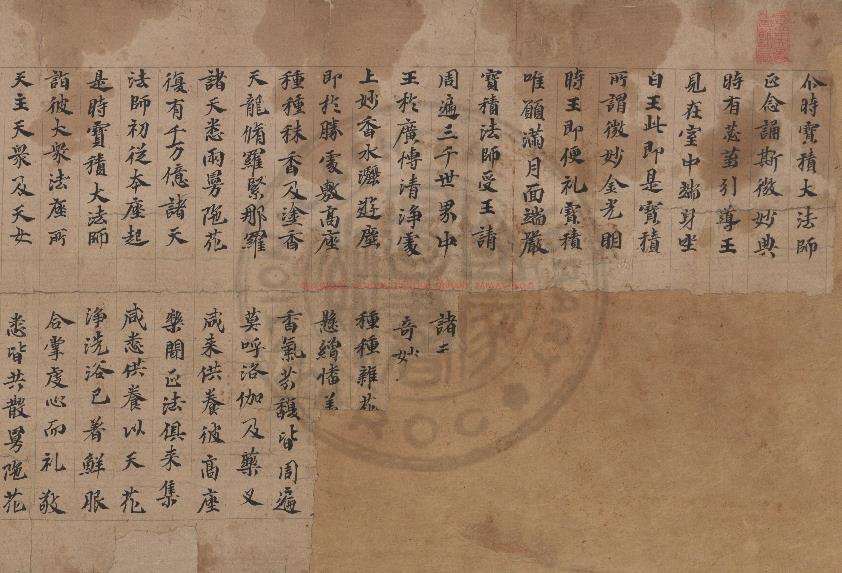 尒時寶積大法師
正念誦斯微妙典
時有苾芻引導王
見在室中端身坐
白王此即是寶積
所謂微妙金光明
時王即便礼寶積
唯願滿月面端嚴
寶積法師受王請
周遍三千世界中 諸
王於廣愽清淨處 奇妙
上妙香水灑遊塵 種種雜花
即於勝處敷高座 懸繒幡盖
種種秣香及塗香 香氣芬馥皆周遍
天龍脩羅緊那羅 莫呼洛伽及藥叉
諸天悉雨曼陁花 咸来供養彼高座
復有千万億諸天 樂聞正法俱来集
法師初從本座起 咸悉供養以天花
是時寶積大法師 淨洗浴已著鮮服
詣彼大衆法座所 合掌虔心而礼敬
天主天衆及天女 悉皆共散曼陁花